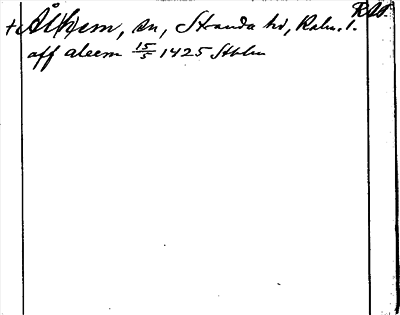 +Ålhem, sn, Stranda hd, Kalm. l.
aff aleem 15/5 1425 Sthlm